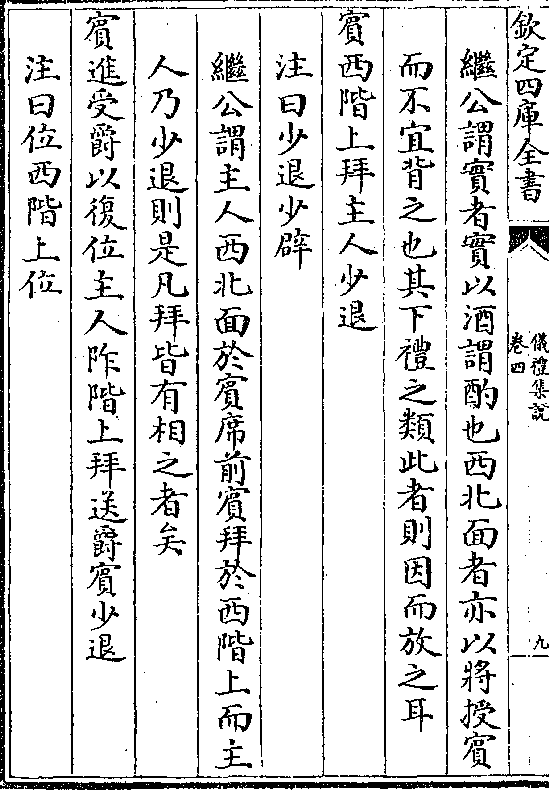 欽定四庫全書
儀禮集說
卷四
九
繼公謂實者實以酒謂酌也西北面者亦以將授賓
而不宜背之也其下禮之類此者則因而放之耳
賓西階上拜主人少退
注曰少退少辟
繼公謂主人西北面於賓席前賓拜於西階上而主
人乃少退則是凡拜皆有相之者矣
賓進受爵以復位主人阼階上拜送爵賓少退
注曰位西階上位